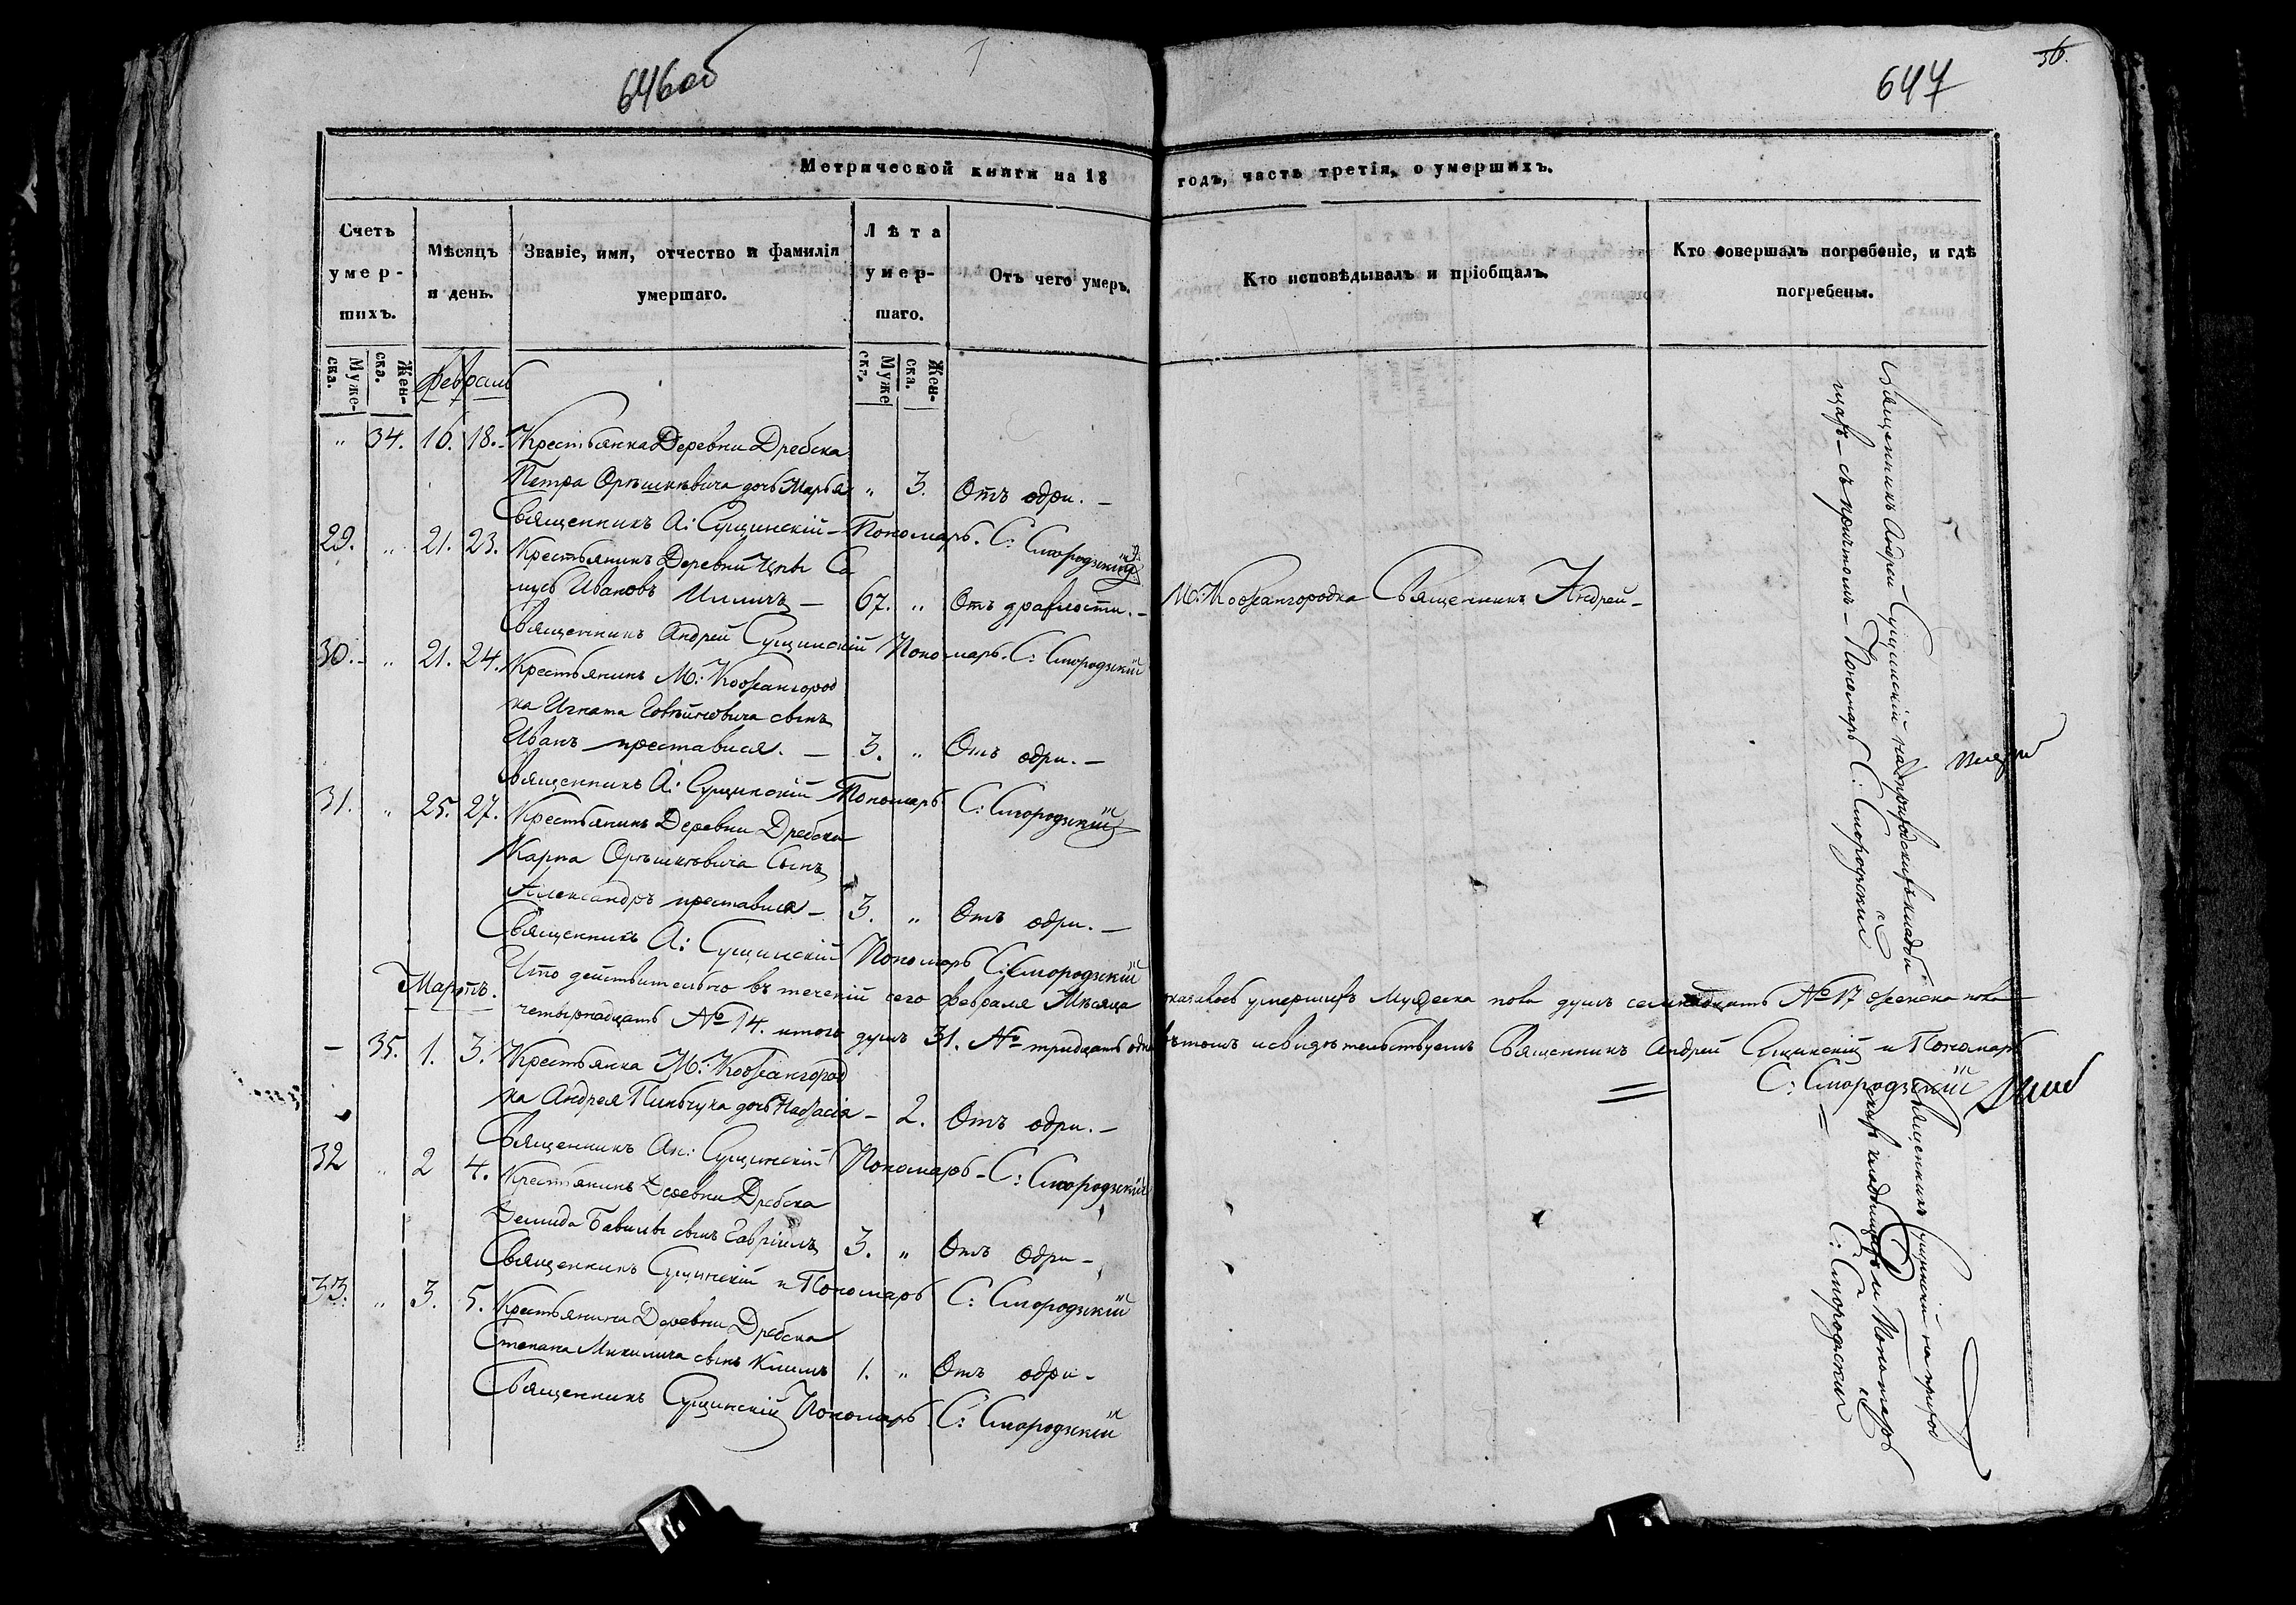 646об
647
36.
Метрической книги на 18 годъ, часть третія, о умершихъ.
Счетъ умер-шихъ.
Муже-ска.
Жен-ска.
Мѣсяцъ и день.
Званіе, имя, отчество и фамилія умершаго.
Лѣта умер-шаго.
Муже ска.
Жен-ска.
Отъ чего умеръ.
Кто исповѣдывалъ и пріобщалъ.
Кто совершалъ погребеніе, и гдѣ погребены.
Февраль
" 34. 16. 18. Крестьянка Деревни Дребска
Петра Орѣшкѣвича дочь Марья " 3. Отъ одри. —
Священникъ А: Сущинскій — Пономарь. С: Смородскій
29. " 21. 23. Крестьянинъ Деревни Цны Са
Ивановъ — 67. " Отъ драхлости. — М: Кожангородка Священникъ Андрей —
Священникъ Андрей Сущинскій Пономарь. С: Смородскій
30. — " 21. 24. Крестьянинъ М: Кожангород
ка Игната сынъ
Иванъ преставися. — 3. " Отъ одри. —
Священникъ А: Сущинскій Пономарь С: Смородскій
31. " 25. 27. Крестьянинъ Деревни Дребска
Карпа Орѣшкѣвича Сынъ
Александръ преставися — 3. " Отъ одри. —
Священникъ А: Сущинскій Пономарь С: Смородскій
Что действительно въ теченій сего февраля Мѣсяца оказалось умершихъ Мужеска пола душъ семнадцать № 17 женска пола
Мартъ.
четырнадцать № 14. итого душъ 31. № тридцать одна вѣтомъ исвидѣтельствуемъ Священникъ Андрей Сущинскій и Пономарь
С: Смородзскій
— 35. 1. 3. Крестьянка М: Кожангород
ка Андрея Пинчука дочь Настасія — 2. Отъ одри. —
Священникъ Ан: Сущинскій Пономарь — С: Смородскій
32 " 2 4. Крестьянинъ Деревни Дребска
Демида сынъ Гавріилъ 3. " Отъ одри —
Священникъ Сущинскій и Пономарь С: Смородскій
33. " 3. 5. Крестьянина Деревни Дребска
Степана Микулича сынъ Климъ 1. " Отъ одри —
Священникъ Сущинскій Пономарь С: Смородскій
Священникъ Андрей Сущинскій на приходскихъ кладби
щахъ — съ причтомъ — Пономарь С: Смородскій
Священникъ Сущинскій на приход
скихъ кладбищахъ и Пономарь
С: Смородскій